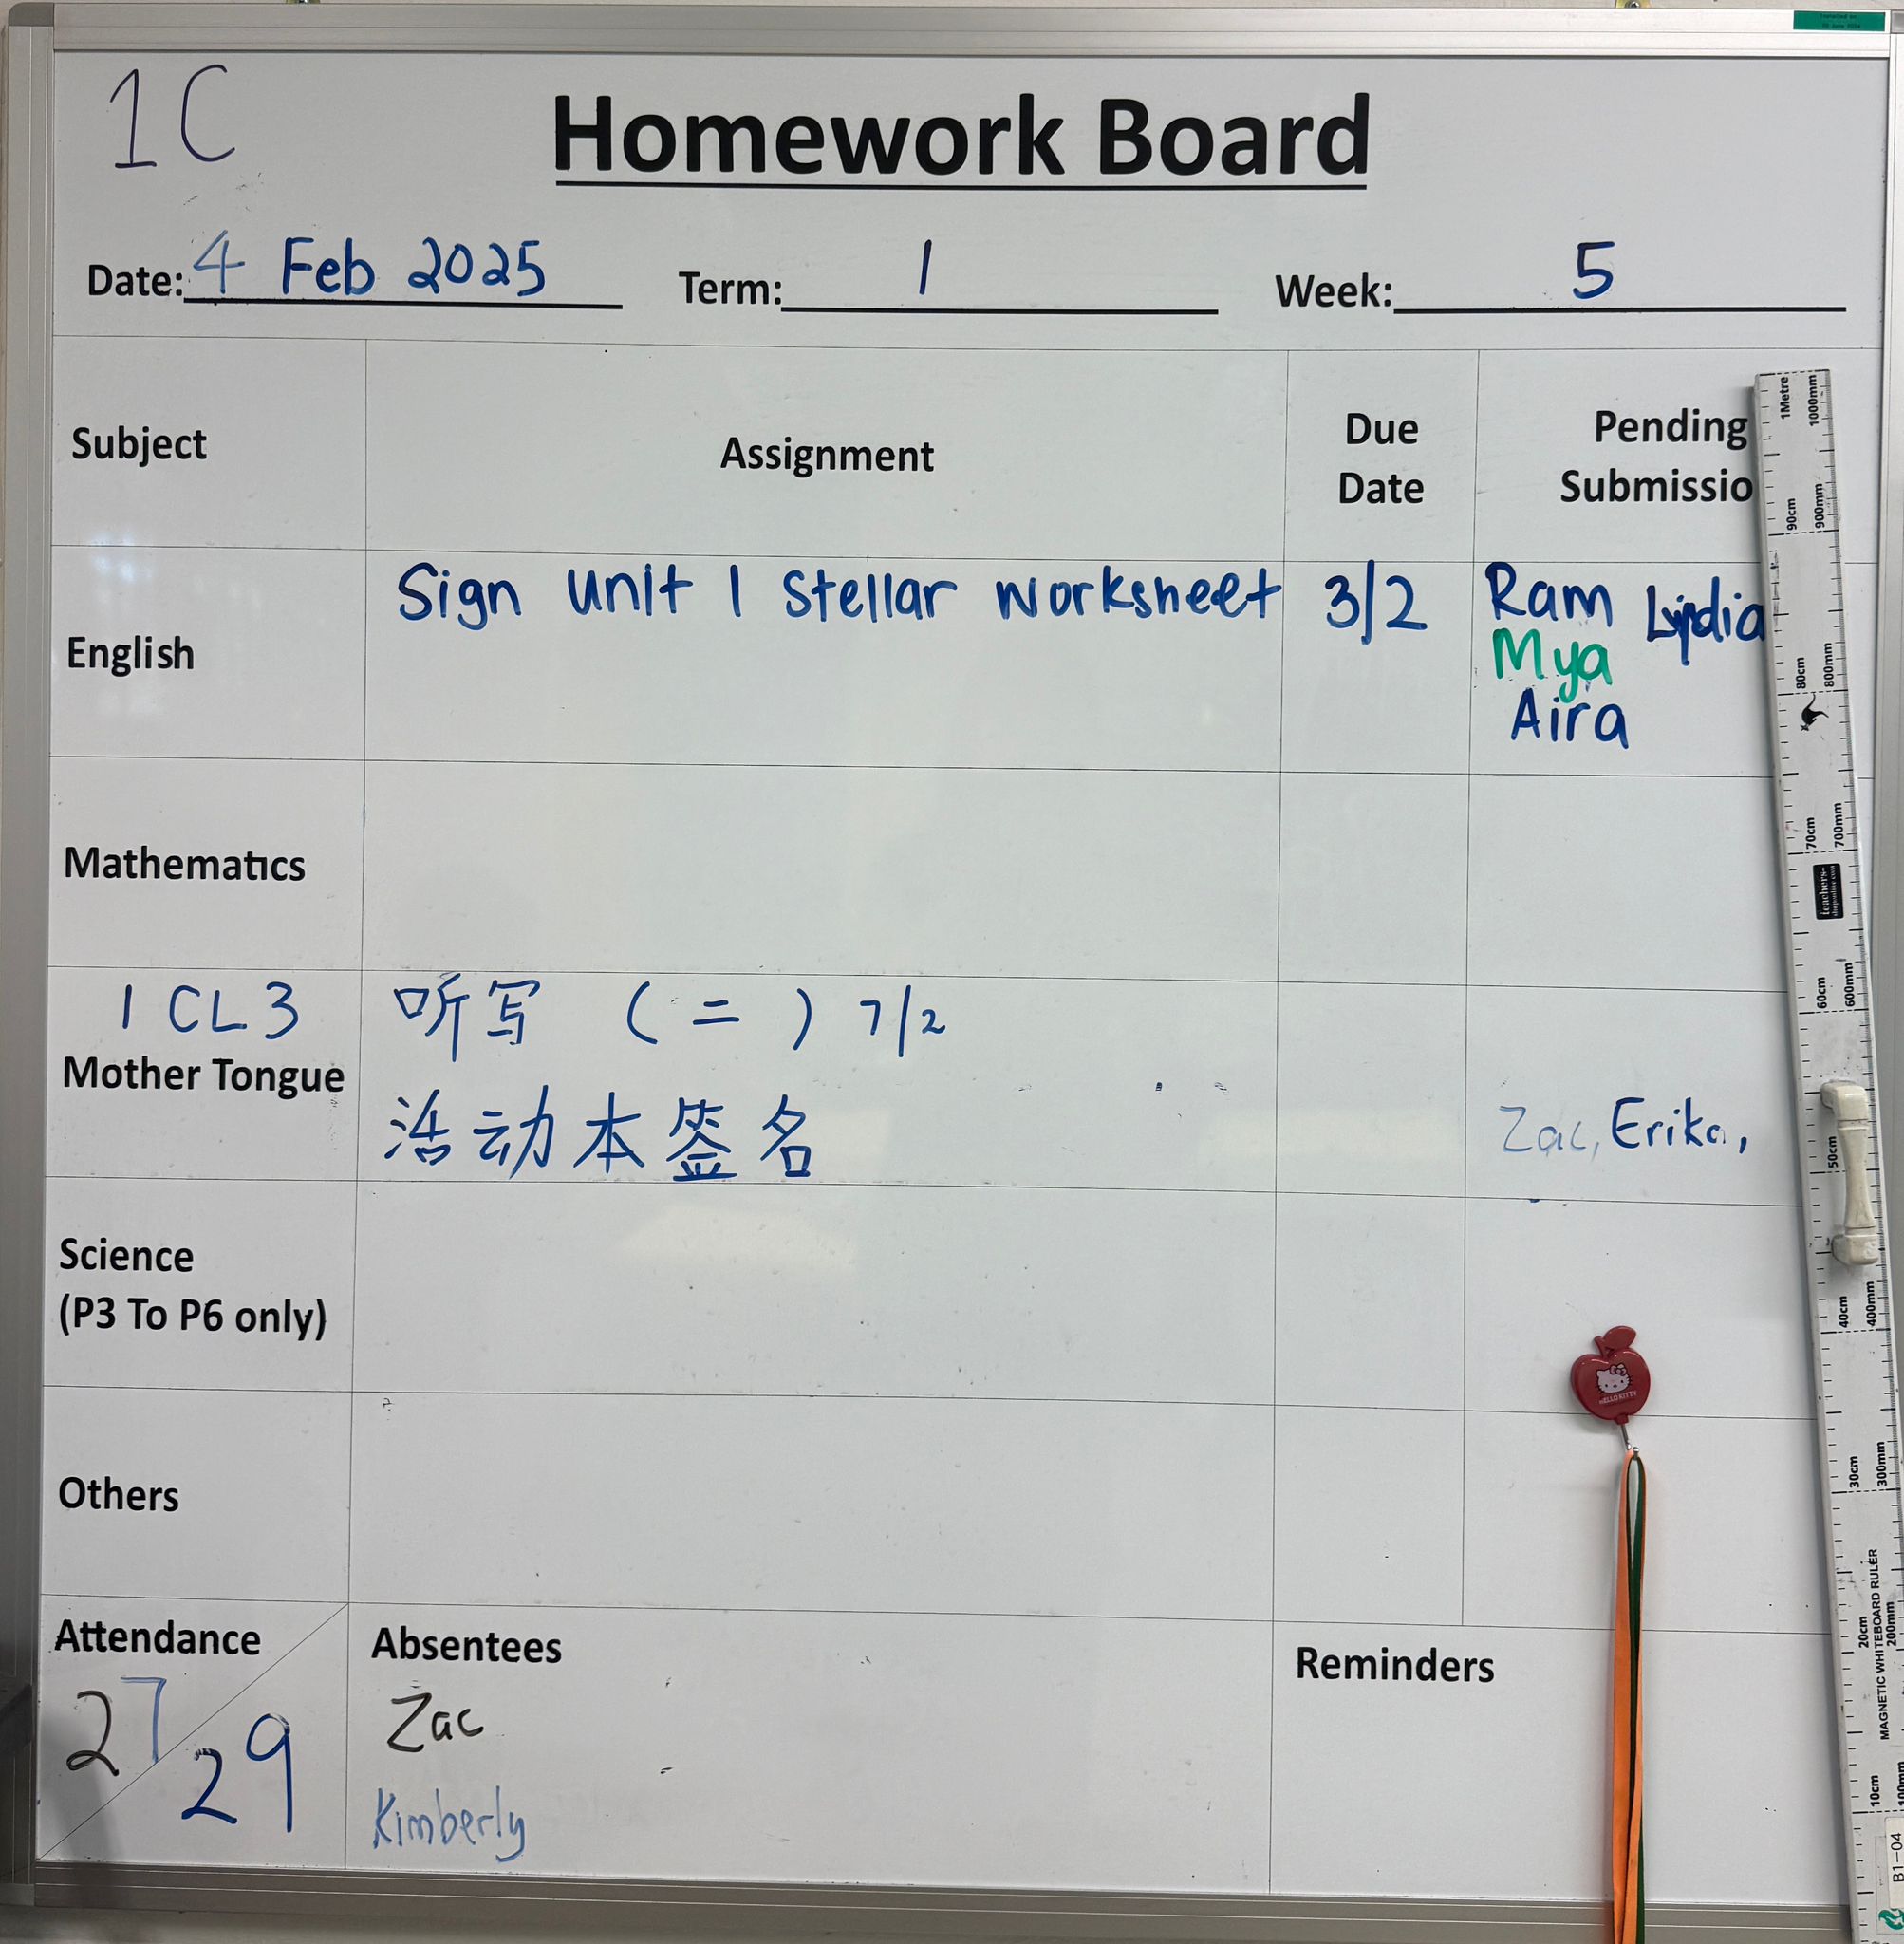 1C
Homework Board
Date: 4 Feb 2025 Term: 1 Week: 5
Subject Assignment Due Date Pending Submissio
English Sign Unit 1 Stellar worksheet 3/2 Ram Lydia
Mya
Aira
Mathematics
1 CL3 听写 (二) 7/2
Mother Tongue
活动本签名 Zac, Erika,
Science
(P3 To P6 only)
HELLO KITTY
Others
Attendance Absentees Reminders
27 Zac
29 Kimberly
1Metre 1000mm
90cm 900mm
80cm 800mm
70cm 700mm
teachers-
60cm 600mm
50cm
40cm 400mm
30cm 300mm
20cm 200mm
MAGNETIC WHITEBOARD RULER
10cm 100mm
B1-04